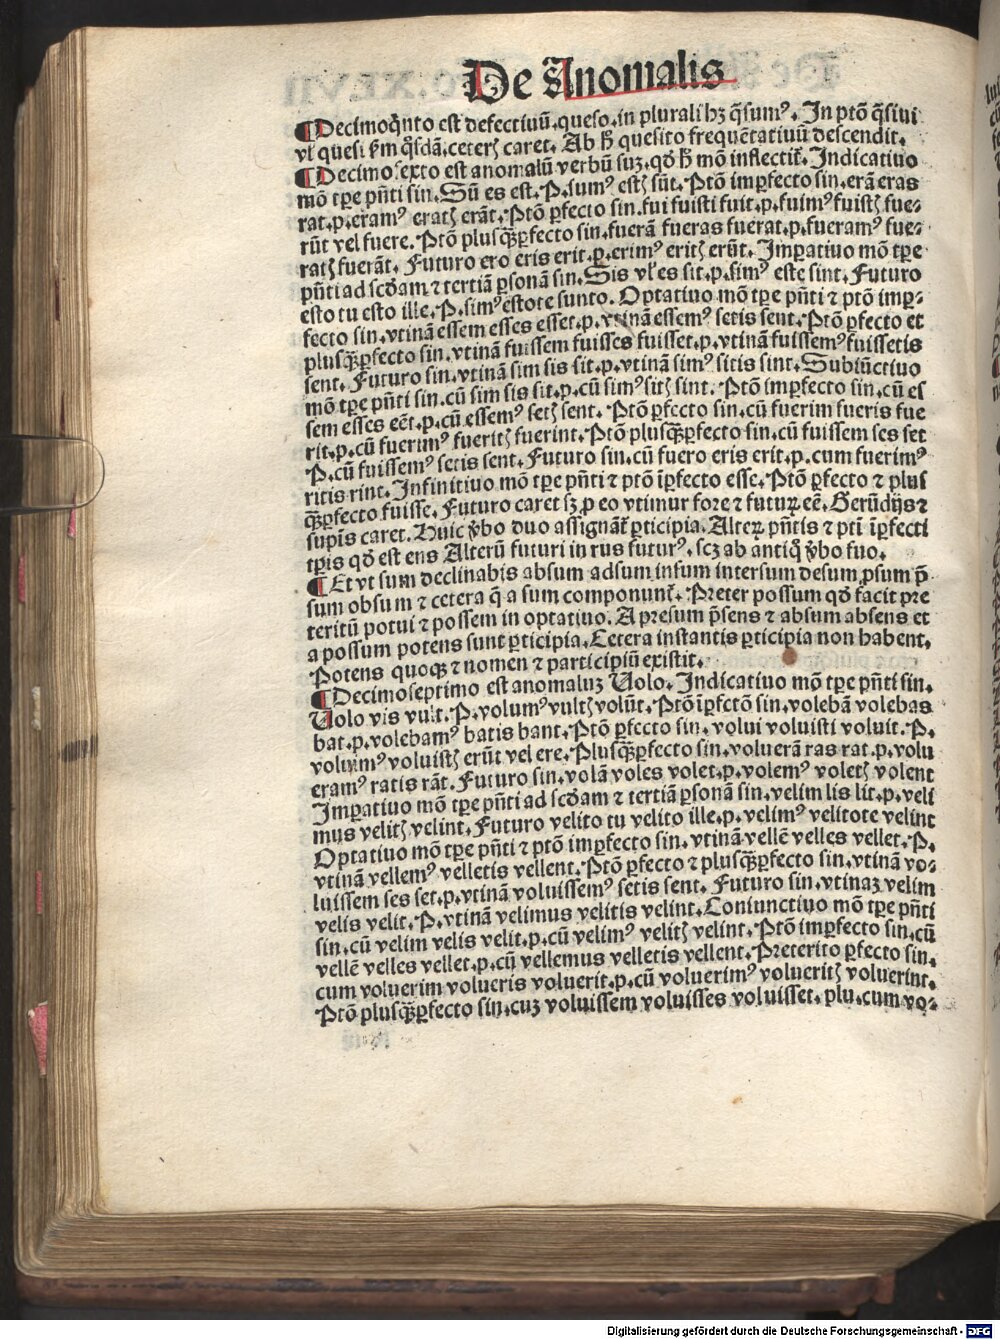 De Anomalis
¶Decimoq̄nto est defectiuū.queso.in plurali hꝫ q̄sumꝰ. In ptō q̄siui
vl̓ quesi ẜm q̇sdā.ceterꝭ caret. Ab h̓ quesito frequētatiuū descendit.
¶Decimosexto est anomalū verbū suꝫ.qđ h̓ mō inflectit᷑. Indicatiuo
mō tꝑe pn̄ti sin.Sū es est.P.sumꝰ estꝭ sūt.Ptō imꝑfecto sin.erā eras
rat.p.eramꝰ eratꝭ erāt.Ptō ꝑfecto sin.fui fuisti fuit.p.fuimꝰ fuistꝭ fue⸗
rūt vel fuere.Ptō plusq̄ꝑfecto sin.fuerā fueras fuerat.p.fueramꝰ fue⸗
ratꝭ fuerāt. Futuro ero eris erit.p.erimꝰ eritꝭ erūt. Imꝑatiuo mō tꝑe
pn̄ti ad scđam ⁊ tertiā ꝑsonā sin.Sis vl̓ es sit.p.simꝰ este sint.Futuro
esto tu esto ille.P.simꝰ estote sunto. Optatiuo mō tꝑe pn̄ti ⁊ ptō imꝑ⸗
fecto sin.vtinā essem esses esset.p.vtinā essemꝰ setis sent.Ptō ꝑfecto et
plusq̄ꝑfecto sin.vtinā fuissem fuisses fuisset.p.vtinā fuissemꝰ fuissetis
sent. Futuro sin.vtinā sim sis sit.p.vtinā simꝰ sitis sint.Subiūctiuo
mō tꝑe pn̄ti sin.cū sim sis sit.p.cū simꝰ sitꝭ sint. Ptō imꝑfecto sin.cū es
sem esses eēt.p.cū essemꝰ setꝭ sent. Ptō ꝑfecto sin.cū fuerim fueris fue
rit.p.cū fuerimꝰ fueritꝭ fuerint.Ptō plusq̄ꝑfecto sin.cū fuissem ses set
P.cū fuissemꝰ setis sent.Futuro sin.cū fuero eris erit.p.cum fuerimꝰ
ritis rint.Infinitiuo mō tꝑe pn̄ti ⁊ ptō īꝑfecto esse.Ptō ꝑfecto ⁊ plus
q̄ꝑfecto fuisse.Futuro caret sꝫ ꝓ eo vtimur fore ⁊ futuꝝ eē.Gerūdijs ⁊
supīs caret.Huic v̓bo duo assignāt᷑ ꝑticipia.Alteꝝ pn̄tis ⁊ ptī īꝑfecti
tꝑis qđ est ens Alterū futuri in rus futurꝰ.scꝫ ab antiq̇ v̓bo fuo.
¶Et vt sum declinabis absum adsum insum intersum desum ꝓsum p̄
sum obsum ⁊ cetera q̄ a sum componunt᷑.Preter possum qđ facit pre
teritū potui ⁊ possem in optatiuo. A presum p̄sens ⁊ absum absens et
a possum potens sunt ꝑticipia.Cetera instantis ꝑticipia non habent.
Potens quoqꝫ ⁊ nomen ⁊ participiū existit.
¶Decimoseptimo est anomaluꝫ Uolo.Indicatiuo mō tꝑe pn̄ti sin.
Uolo vis vult.P.volumꝰ vultꝭ volūt.Ptō īꝑfctō sin.volebā volebas
bat.p.volebamꝰ batis bant.Ptō ꝑfecto sin.volui voluisti voluit.P.
voluimꝰ voluistꝭ erūt vel ere.Plusq̄ꝑfecto sin.voluerā ras rat.p.volu
eramꝰ ratis rāt.Futuro sin.volā voles volet.p.volemꝰ voletꝭ volent
Imꝑatiuo mō tꝑe pn̄ti ad scđam ⁊ tertiā ꝑsonā sin.velim lis lit.p.veli
mus velitꝭ velint.Futuro velito tu velito ille.p.velimꝰ velitote velint
Optatiuo mō tꝑe pn̄ti ⁊ ptō imꝑfecto sin.vtinā vellē velles vellet.P.
vtinā vellemꝰ velletis vellent.Ptō ꝑfecto ⁊ plusq̄ꝑfecto sin.vtinā vo⸗
luissem ses set.p.vtinā voluissemꝰ setis sent. Futuro sin.vtinaꝫ velim
velis velit.P.vtinā velimus velitis velint.Coniunctiuo mō tꝑe pn̄ti
sin.cū velim velis velit.p.cū velimꝰ velitꝭ velint.Ptō imꝑfecto sin.cū
vellē velles vellet.p.cū vellemus velletis vellent.Preterito ꝑfecto sin.
cum voluerim volueris voluerit.p.cū voluerimꝰ volueritꝭ voluerint.
Ptō plusq̄ꝑfecto sin.cuꝫ voluissem voluisses voluisset.plu.cum vo⸗
Digitalisierung gefördert durch die Deutsche Forschungsgemeinschaft - DFG